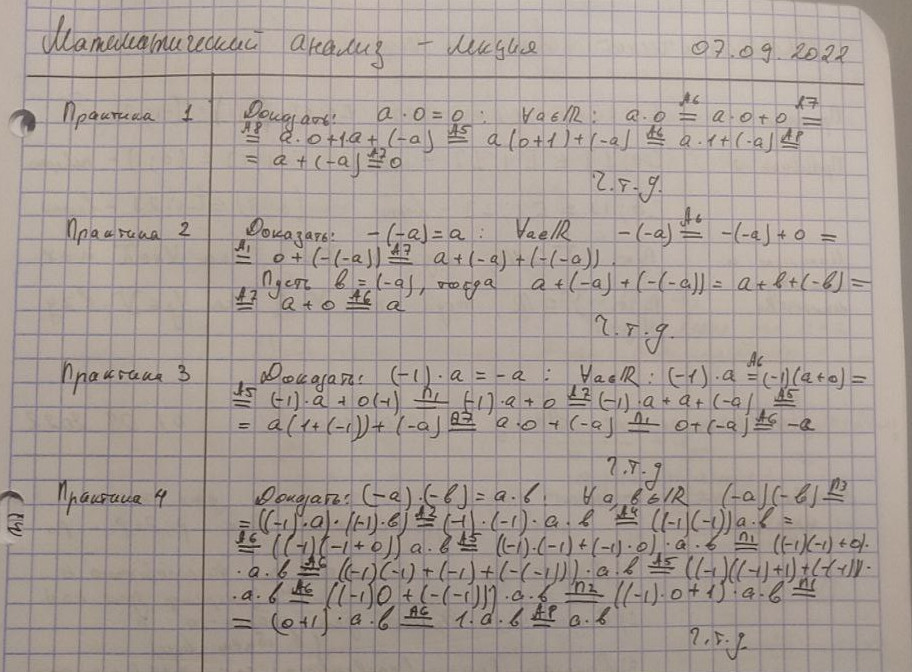 Математический анализ – лекция 07.09.2022
Практика 1 Доказать: a · 0 = 0 : ∀a∈ℝ : a · 0 =(A6) a · 0 + 0 =(A7)
=(A8) a · 0 + 1a + (-a) =(A5) a(0+1) + (-a) =(A6) a · 1 + (-a) =(A8)
= a + (-a) =(A7) 0
Ч.т.д.
Практика 2 Доказать: -(-a) = a : ∀a∈ℝ -(-a) =(A6) -(-a) + 0 =
=(A1) 0 + (-(-a)) =(A7) a + (-a) + (-(-a)).
Пусть b = (-a), тогда a + (-a) + (-(-a)) = a + b + (-b) =
=(A7) a + 0 =(A6) a
Ч.т.д.
Практика 3 Доказать: (-1) · a = -a : ∀a∈ℝ : (-1) · a =(A6) (-1)(a+0) =
=(A5) (-1) · a + 0(-1) =(П1) (-1) · a + 0 =(A7) (-1) · a + a + (-a) =(A5)
= a(1+(-1)) + (-a) =(A7) a · 0 + (-a) =(П1) 0 + (-a) =(A6) -a
Ч.т.д
Практика 4 Доказать: (-a) · (-b) = a · b : ∀ a, b ∈ ℝ (-a)(-b) =(П3)
= ((-1) · a) · ((-1) · b) =(A2) (-1) · (-1) · a · b =(A4) ((-1)(-1)) a · b =
=(A6) ((-1)(-1+0)) a · b =(A5) ((-1) · (-1) + (-1) · 0) · a · b =(П1) ((-1)(-1)+0) ·
· a · b =(A6) ((-1)(-1) + (-1) + (-(-1))) · a · b =(A5) ((-1)((-1)+1) + (-(-1))) ·
· a · b =(A6) ((-1)0 + (-(-1))) · a · b =(П2) ((-1) · 0 + 1) · a · b =(П1)
= (0+1) · a · b =(A6) 1 · a · b =(A8) a · b
Ч.т.д.